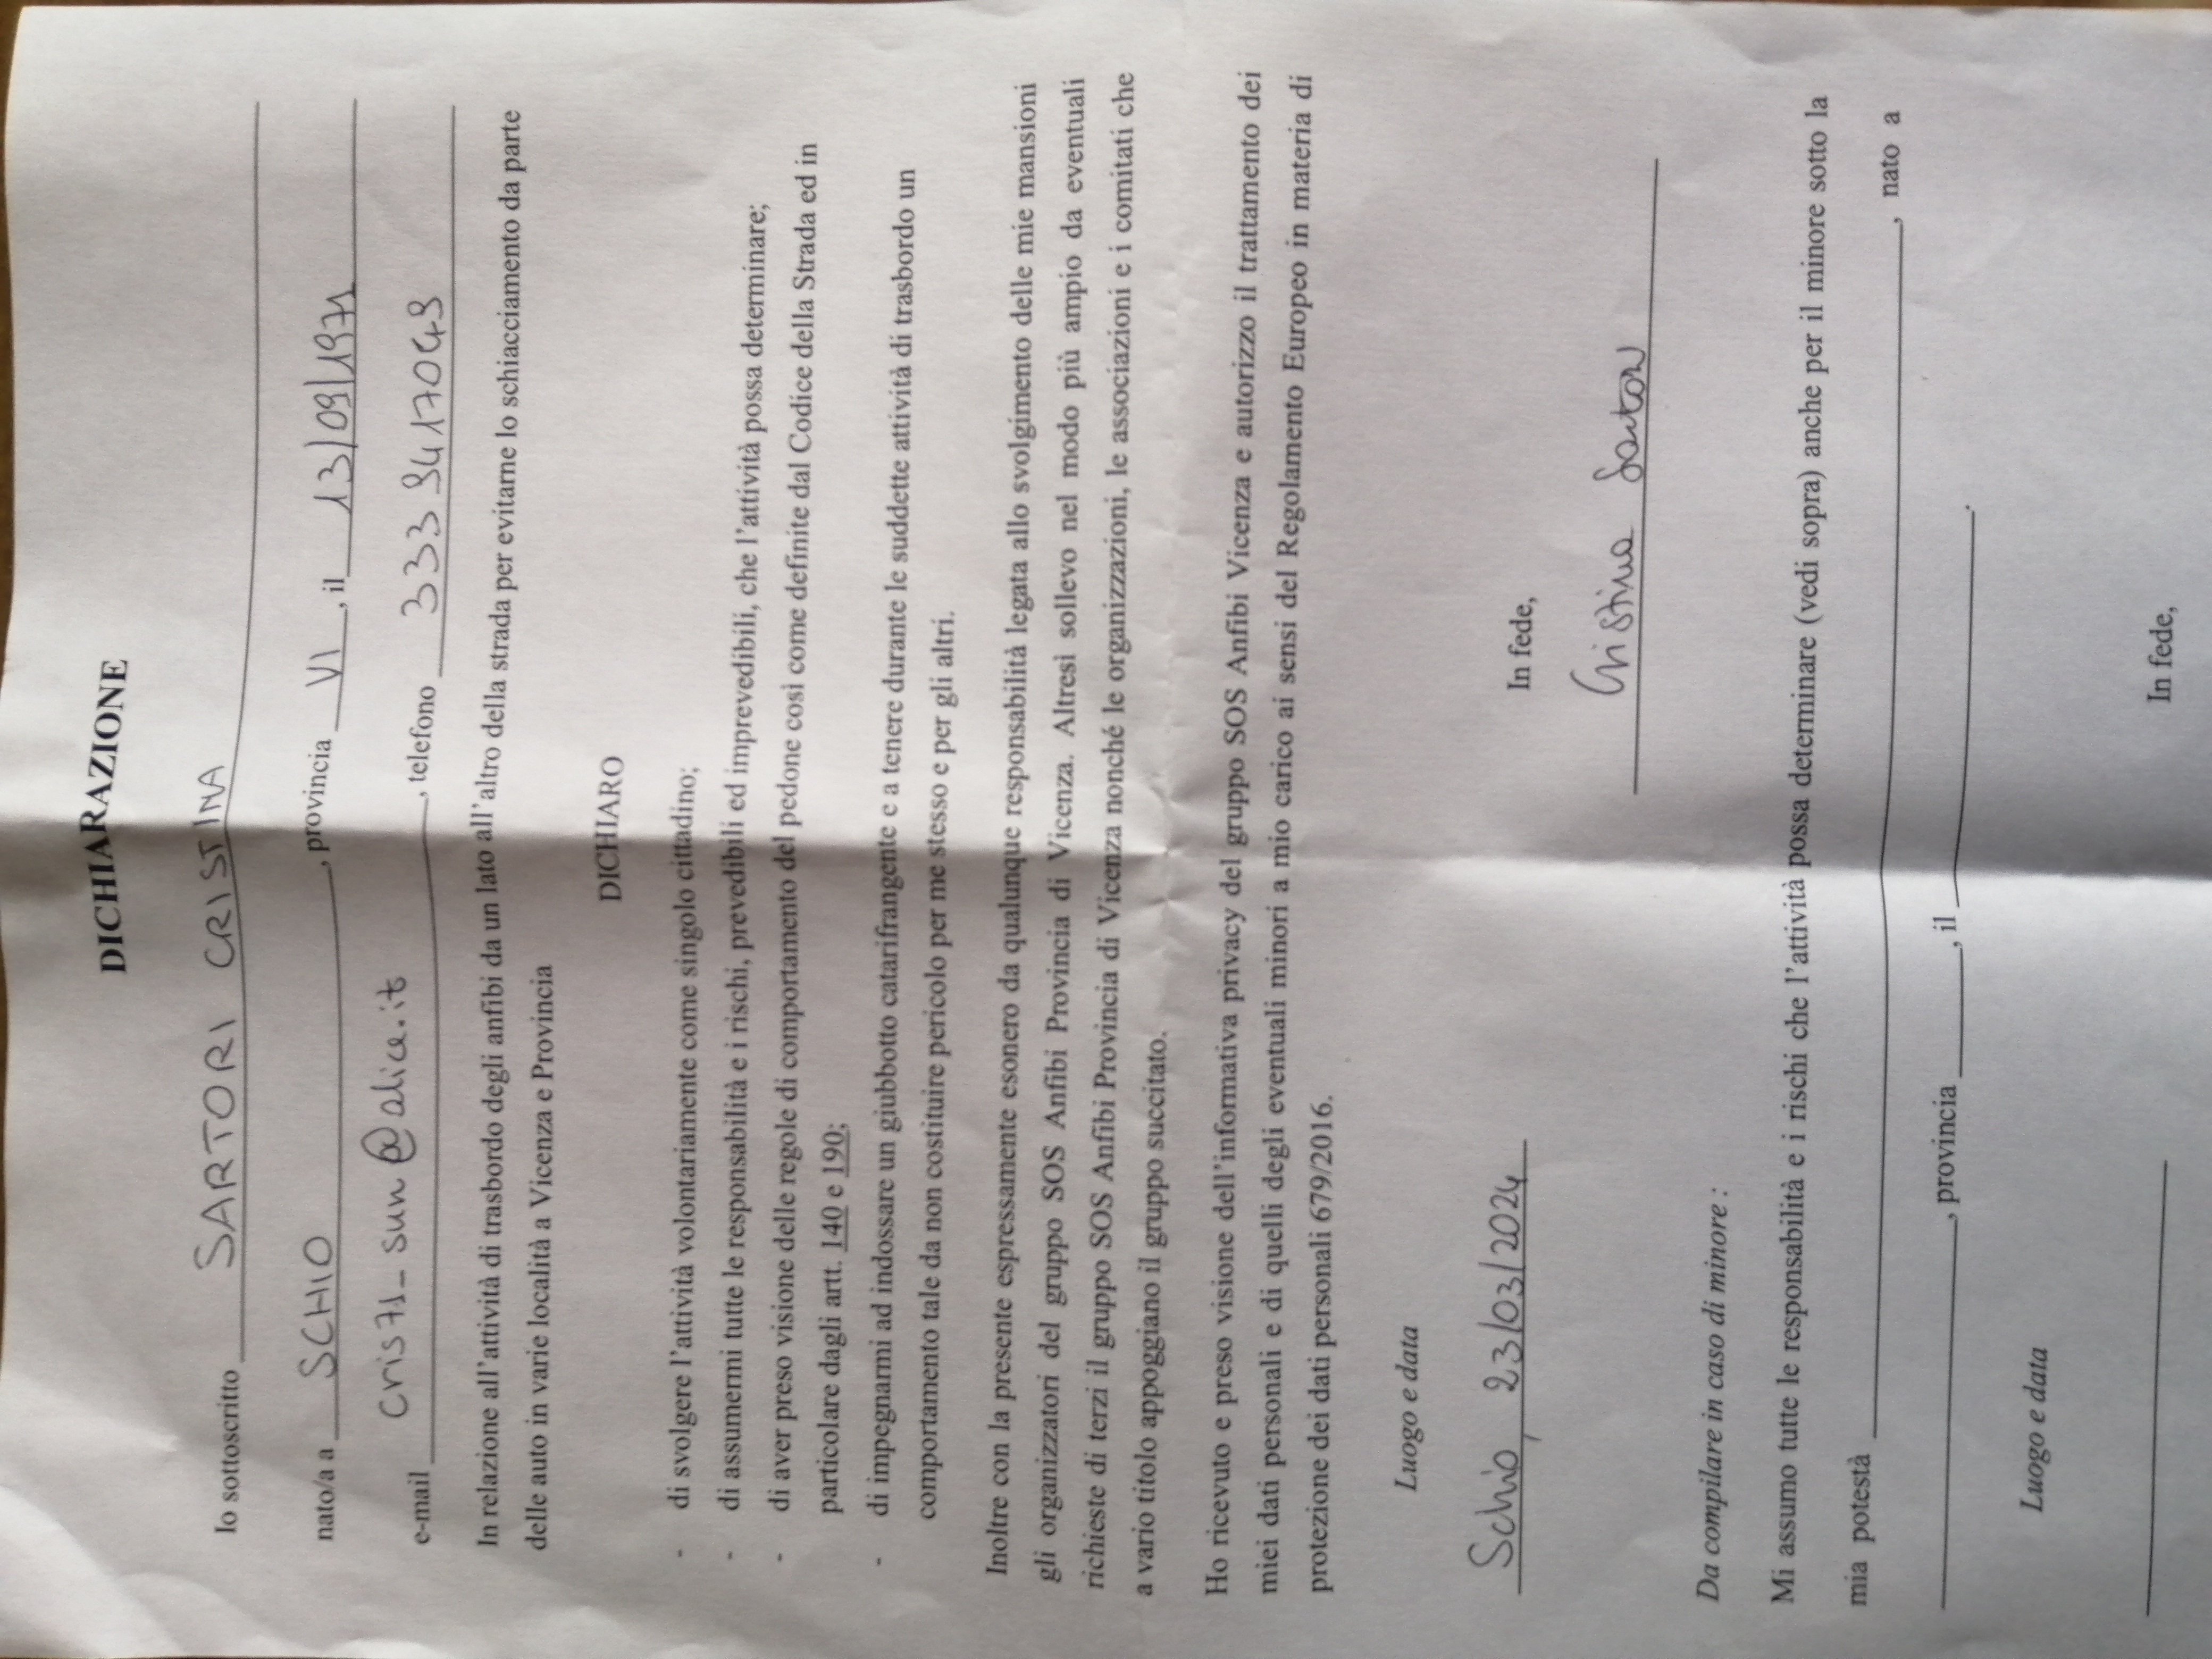 DICHIARAZIONE
Io sottoscritto SARTORI CRISTINA
nato/a a SCHIO, provincia VI, il 13/09/1971
e-mail cris71_sun@alice.it, telefono 333 9417049
In relazione all'attività di trasbordo degli anfibi da un lato all'altro della strada per evitarne lo schiacciamento da parte
delle auto in varie località a Vicenza e Provincia
DICHIARO
- di svolgere l'attività volontariamente come singolo cittadino;
- di assumermi tutte le responsabilità e i rischi, prevedibili ed imprevedibili, che l'attività possa determinare;
- di aver preso visione delle regole di comportamento del pedone così come definite dal Codice della Strada ed in
particolare dagli artt. 140 e 190;
- di impegnarmi ad indossare un giubbotto catarifrangente e a tenere durante le suddette attività di trasbordo un
comportamento tale da non costituire pericolo per me stesso e per gli altri.
Inoltre con la presente espressamente esonero da qualunque responsabilità legata allo svolgimento delle mie mansioni
gli organizzatori del gruppo SOS Anfibi Provincia di Vicenza. Altresì sollevo nel modo più ampio da eventuali
richieste di terzi il gruppo SOS Anfibi Provincia di Vicenza nonché le organizzazioni, le associazioni e i comitati che
a vario titolo appoggiano il gruppo succitato.
Ho ricevuto e preso visione dell'informativa privacy del gruppo SOS Anfibi Vicenza e autorizzo il trattamento dei
miei dati personali e di quelli degli eventuali minori a mio carico ai sensi del Regolamento Europeo in materia di
protezione dei dati personali 679/2016.
Luogo e data
In fede,
Schio, 23/03/2024
Cristina Sartori
Da compilare in caso di minore :
Mi assumo tutte le responsabilità e i rischi che l'attività possa determinare (vedi sopra) anche per il minore sotto la
mia potestà , nato a
, provincia , il .
Luogo e data
In fede,